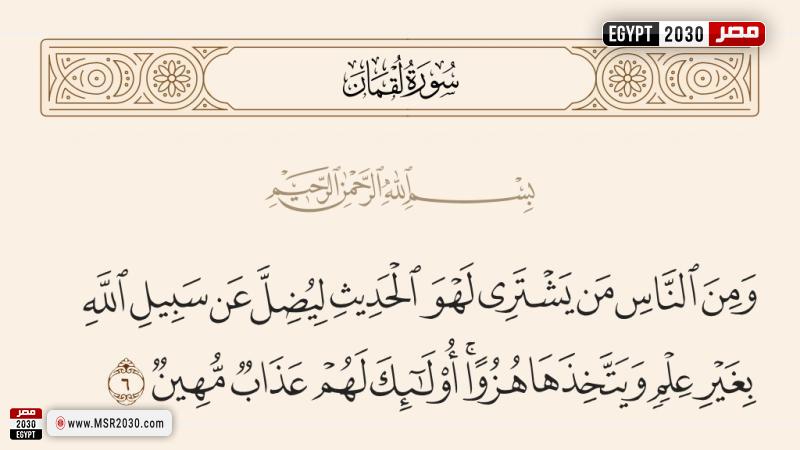 EGYPT 2030 مصر
سُورَةُ لُقْمَانَ
بِسْمِ ٱللَّهِ ٱلرَّحْمَٰنِ ٱلرَّحِيمِ
وَمِنَ ٱلنَّاسِ مَن يَشْتَرِى لَهْوَ ٱلْحَدِيثِ لِيُضِلَّ عَن سَبِيلِ ٱللَّهِ
بِغَيْرِ عِلْمٍ وَيَتَّخِذَهَا هُزُوًا ۚ أُو۟لَٰٓئِكَ لَهُمْ عَذَابٌ مُّهِينٌ ٦
مصر
2030
EGYPT
www.MSR2030.com